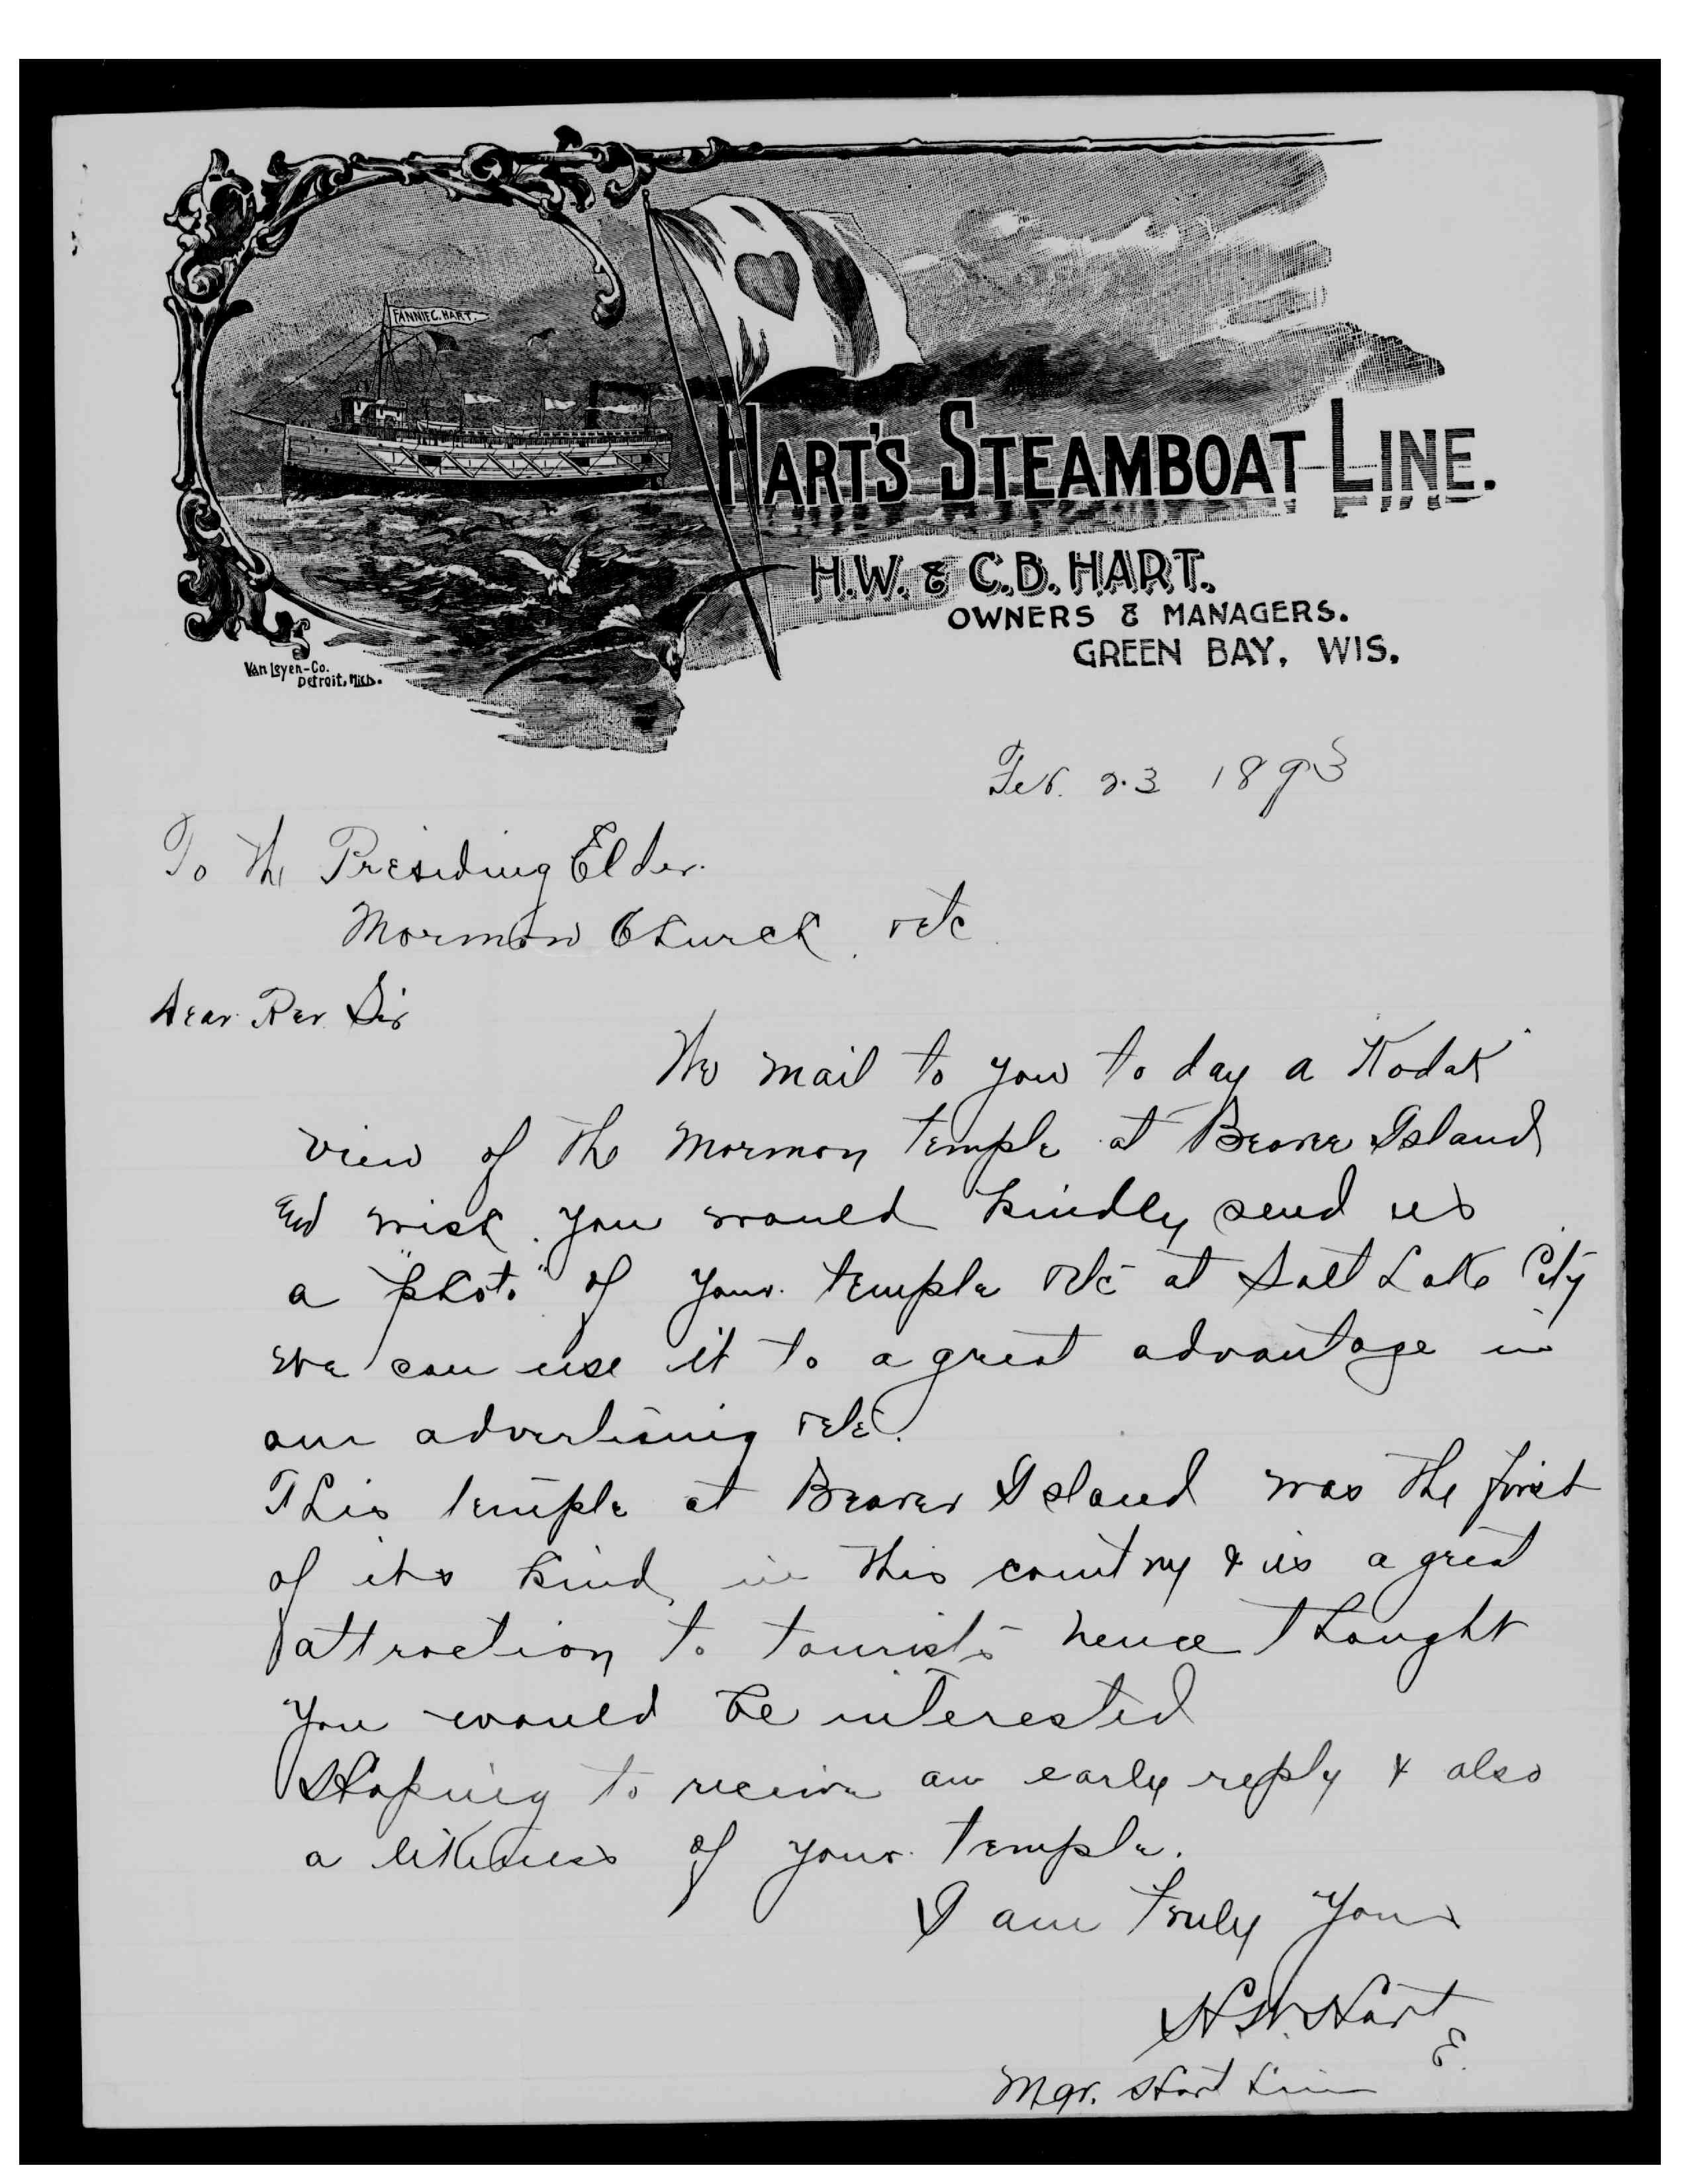 FANNIE C. HART.
HART'S STEAMBOAT LINE.
H.W. & C.B. HART.
OWNERS & MANAGERS.
GREEN BAY, WIS.
Van Leyen-Co.
Detroit, Mich.
Feb. 23 1893
To the Presiding Elder.
Mormon Church. etc
Dear Rev. Sir
We mail to you to day a "Kodak"
view of the Mormon temple at Beaver Island
and wish you would kindly send us
a "photo" of your temple etc at Salt Lake City
we can use it to a great advantage in
our advertising etc.
This temple at Beaver Island was the first
of its kind in this country & is a great
attraction to tourists hence thought
you would be interested
Hoping to receive an early reply & also
a likeness of your temple.
I am truly Yours
H.W. Hart
E.
Mgr. Hart Line